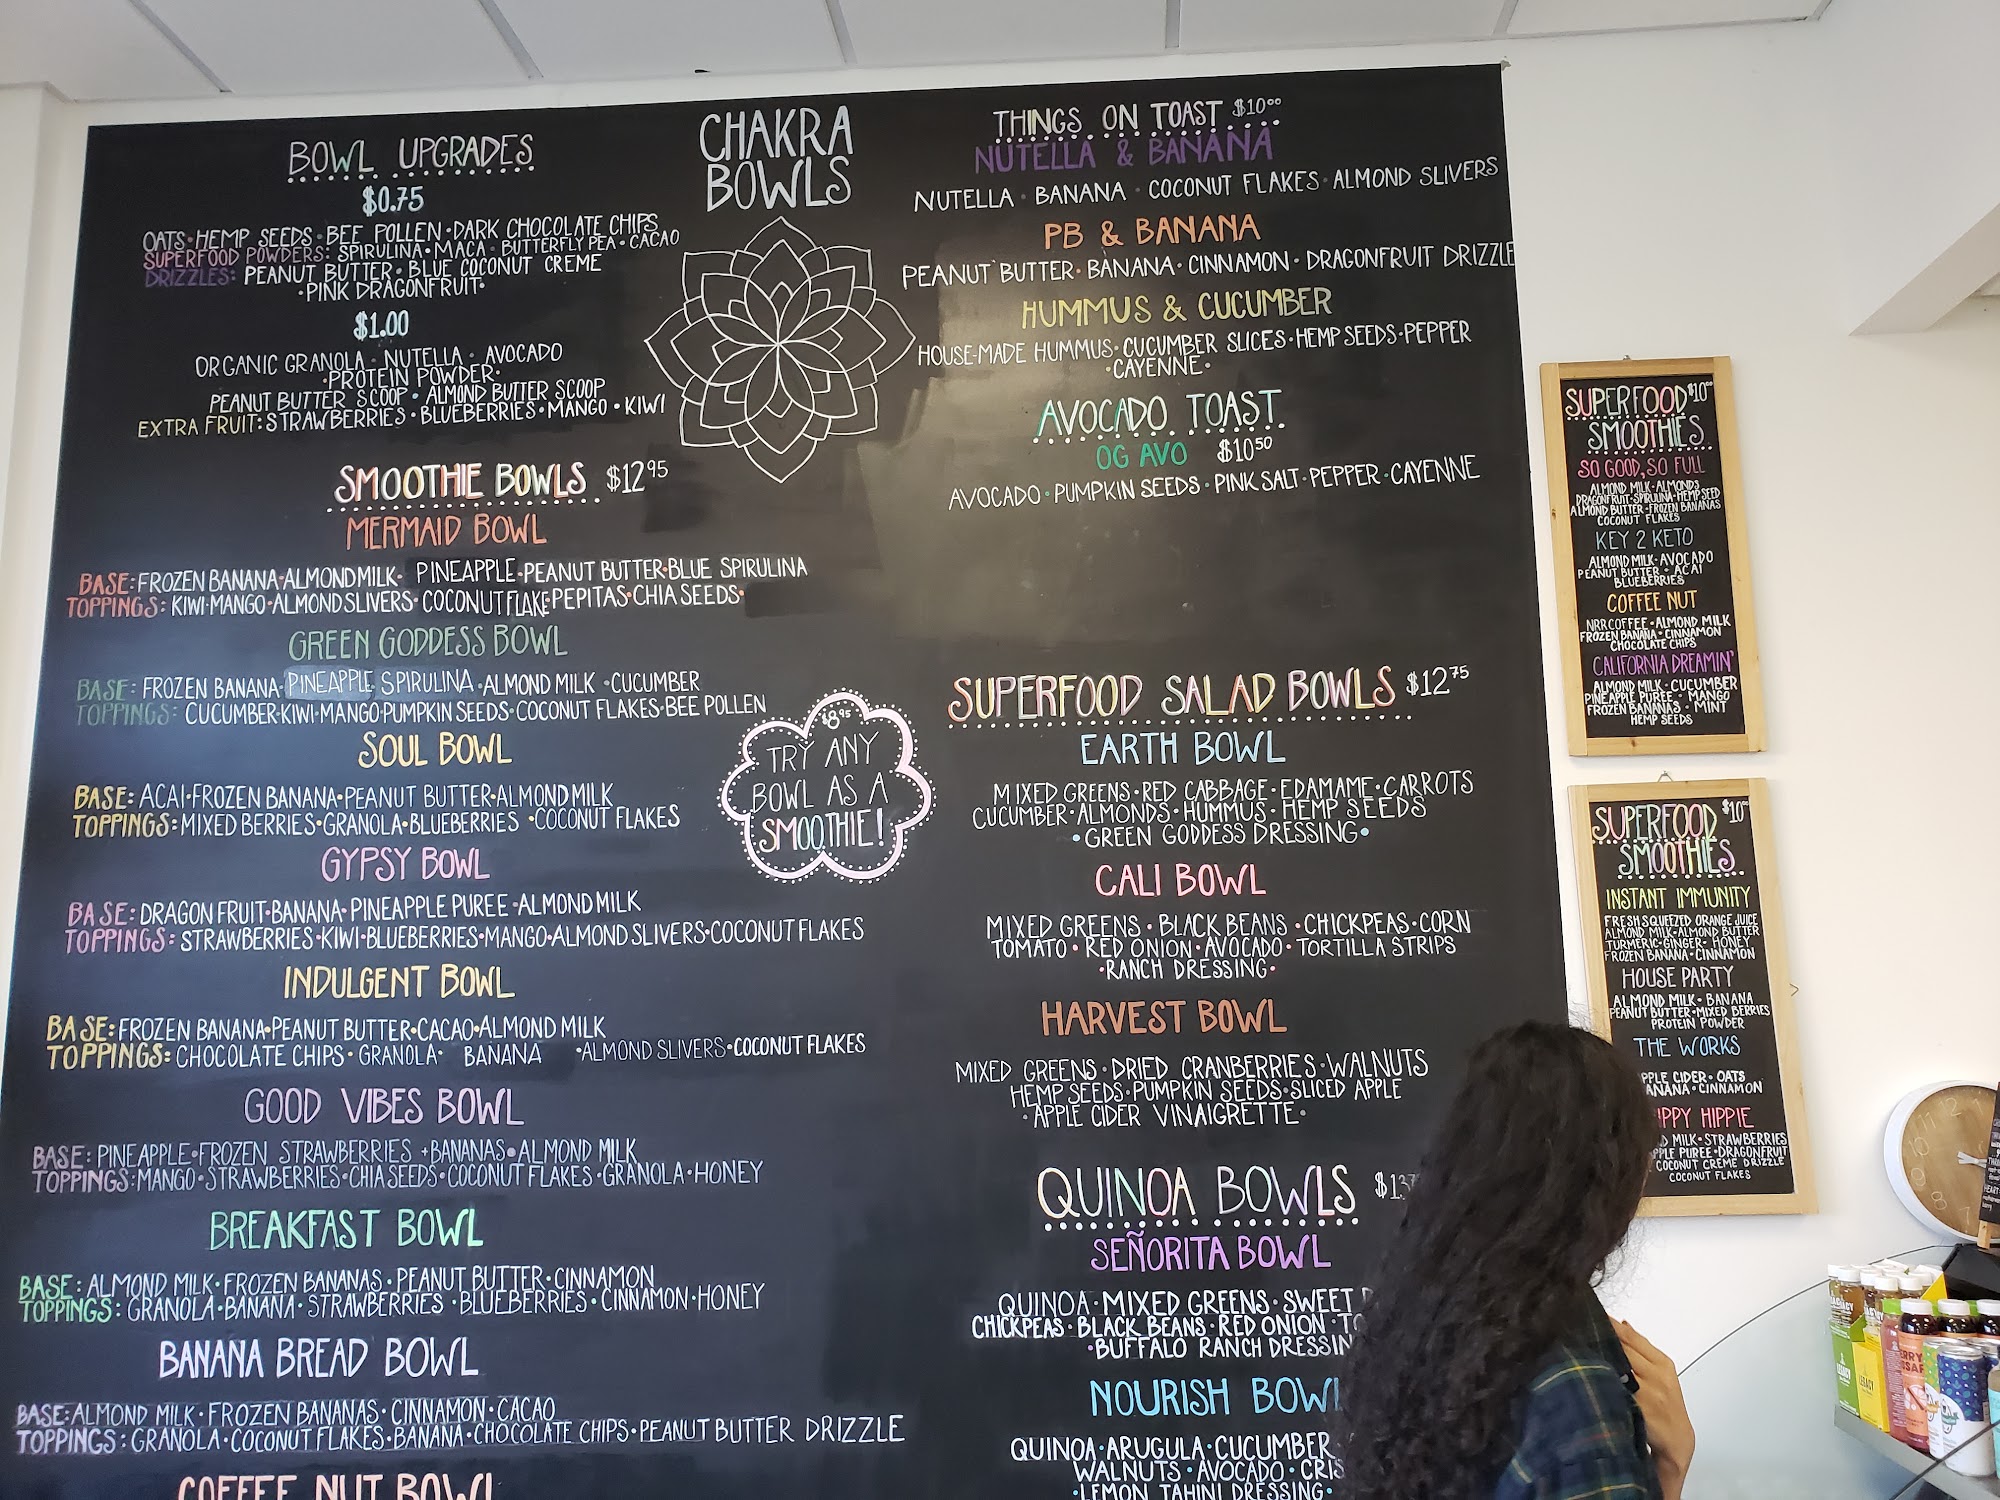 BOWL UPGRADES
$0.75
OATS • HEMP SEEDS • BEE POLLEN • DARK CHOCOLATE CHIPS
SUPERFOOD POWDERS: SPIRULINA • MACA • BUTTERFLY PEA • CACAO
DRIZZLES: PEANUT BUTTER • BLUE COCONUT CREME
• PINK DRAGONFRUIT •
$1.00
ORGANIC GRANOLA • NUTELLA • AVOCADO
• PROTEIN POWDER •
PEANUT BUTTER SCOOP • ALMOND BUTTER SCOOP
EXTRA FRUIT: STRAWBERRIES • BLUEBERRIES • MANGO • KIWI
CHAKRA
BOWLS
SMOOTHIE BOWLS $12.95
MERMAID BOWL
BASE: FROZEN BANANA • ALMOND MILK • PINEAPPLE • PEANUT BUTTER • BLUE SPIRULINA
TOPPINGS: KIWI • MANGO • ALMOND SLIVERS • COCONUT FLAKE PEPITAS • CHIA SEEDS •
GREEN GODDESS BOWL
BASE: FROZEN BANANA • PINEAPPLE SPIRULINA • ALMOND MILK • CUCUMBER
TOPPINGS: CUCUMBER • KIWI • MANGO • PUMPKIN SEEDS • COCONUT FLAKES • BEE POLLEN
SOUL BOWL
BASE: ACAI • FROZEN BANANA • PEANUT BUTTER • ALMOND MILK
TOPPINGS: MIXED BERRIES • GRANOLA • BLUEBERRIES • COCONUT FLAKES
GYPSY BOWL
BASE: DRAGON FRUIT • BANANA • PINEAPPLE PUREE • ALMOND MILK
TOPPINGS: STRAWBERRIES • KIWI • BLUEBERRIES • MANGO • ALMOND SLIVERS • COCONUT FLAKES
INDULGENT BOWL
BASE: FROZEN BANANA • PEANUT BUTTER • CACAO • ALMOND MILK
TOPPINGS: CHOCOLATE CHIPS • GRANOLA • BANANA • ALMOND SLIVERS • COCONUT FLAKES
GOOD VIBES BOWL
BASE: PINEAPPLE • FROZEN STRAWBERRIES + BANANAS • ALMOND MILK
TOPPINGS: MANGO • STRAWBERRIES • CHIA SEEDS • COCONUT FLAKES • GRANOLA • HONEY
BREAKFAST BOWL
BASE: ALMOND MILK • FROZEN BANANAS • PEANUT BUTTER • CINNAMON
TOPPINGS: GRANOLA • BANANA • STRAWBERRIES • BLUEBERRIES • CINNAMON • HONEY
BANANA BREAD BOWL
BASE: ALMOND MILK • FROZEN BANANAS • CINNAMON • CACAO
TOPPINGS: GRANOLA • COCONUT FLAKES • BANANA • CHOCOLATE CHIPS • PEANUT BUTTER DRIZZLE
COFFEE NUT BOWL
$8.95
TRY ANY
BOWL AS A
SMOOTHIE!
THINGS ON TOAST $10.00
NUTELLA & BANANA
NUTELLA • BANANA • COCONUT FLAKES • ALMOND SLIVERS
PB & BANANA
PEANUT BUTTER • BANANA • CINNAMON • DRAGONFRUIT DRIZZLE
HUMMUS & CUCUMBER
HOUSE-MADE HUMMUS • CUCUMBER SLICES • HEMP SEEDS • PEPPER
• CAYENNE •
AVOCADO TOAST
OG AVO $10.50
AVOCADO • PUMPKIN SEEDS • PINK SALT • PEPPER • CAYENNE
SUPERFOOD SALAD BOWLS $12.75
EARTH BOWL
MIXED GREENS • RED CABBAGE • EDAMAME • CARROTS
CUCUMBER • ALMONDS • HUMMUS • HEMP SEEDS
• GREEN GODDESS DRESSING •
CALI BOWL
MIXED GREENS • BLACK BEANS • CHICKPEAS • CORN
TOMATO • RED ONION • AVOCADO • TORTILLA STRIPS
• RANCH DRESSING •
HARVEST BOWL
MIXED GREENS • DRIED CRANBERRIES • WALNUTS
HEMP SEEDS • PUMPKIN SEEDS • SLICED APPLE
• APPLE CIDER VINAIGRETTE •
QUINOA BOWLS $13
SEÑORITA BOWL
QUINOA • MIXED GREENS • SWEET
CHICKPEAS • BLACK BEANS • RED ONION •
• BUFFALO RANCH DRESSIN
NOURISH BOWL
QUINOA • ARUGULA • CUCUMBER
WALNUTS • AVOCADO • CRIS
• LEMON TAHINI DRESSING •
SUPERFOOD $10.00
SMOOTHIES
SO GOOD, SO FULL
ALMOND MILK • ALMONDS
DRAGONFRUIT • SPIRULINA • HEMP SEED
ALMOND BUTTER • FROZEN BANANAS
COCONUT FLAKES
KEY 2 KETO
ALMOND MILK • AVOCADO
PEANUT BUTTER • ACAI
BLUEBERRIES
COFFEE NUT
NRR COFFEE • ALMOND MILK
FROZEN BANANA • CINNAMON
CHOCOLATE CHIPS
CALIFORNIA DREAMIN'
ALMOND MILK • CUCUMBER
PINEAPPLE PUREE • MANGO
FROZEN BANANAS • MINT
HEMP SEEDS
SUPERFOOD $10.00
SMOOTHIES
INSTANT IMMUNITY
FRESH SQUEEZED ORANGE JUICE
ALMOND MILK • ALMOND BUTTER
TURMERIC • GINGER • HONEY
FROZEN BANANA • CINNAMON
HOUSE PARTY
ALMOND MILK • BANANA
PEANUT BUTTER • MIXED BERRIES
PROTEIN POWDER
THE WORKS
PPLE CIDER • OATS
ANANA • CINNAMON
IPPY HIPPIE
D MILK • STRAWBERRIES
PPLE PUREE • DRAGONFRUIT
COCONUT CREME DRIZZLE
COCONUT FLAKES
LEGACY